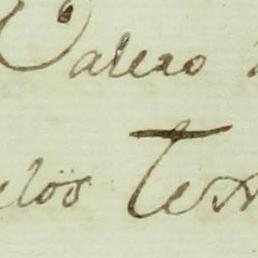 Valero
elös Tex